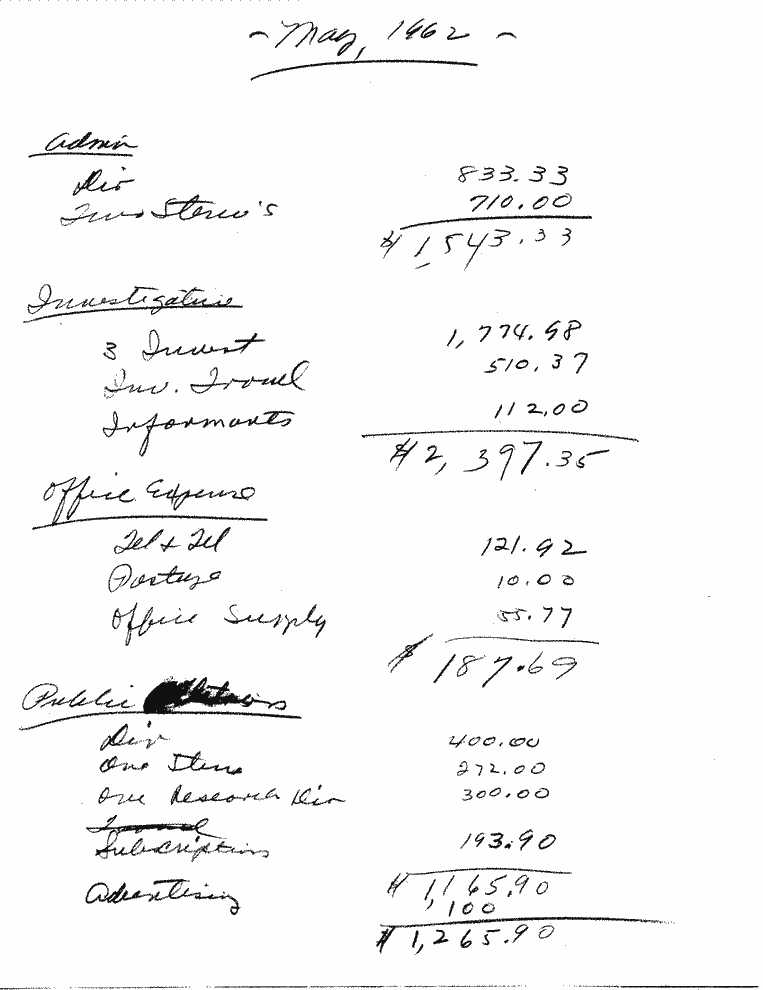 - May, 1962 -
Admin
Dir 833.33
Two Steno's 710.00
$ 1,543.33
Investigative
3 Invest 1,774.98
Inv. Travel 510.37
Informants 112.00
$ 2,397.35
Office Expense
Tel & Tel 121.92
Postage 10.00
Office Supply 55.77
$ 187.69
Public
Dir 400.00
One Steno 272.00
One Research Dir 300.00
Travel
Subscriptions 193.90
$ 1,165.90
Advertising 100
$ 1,265.90